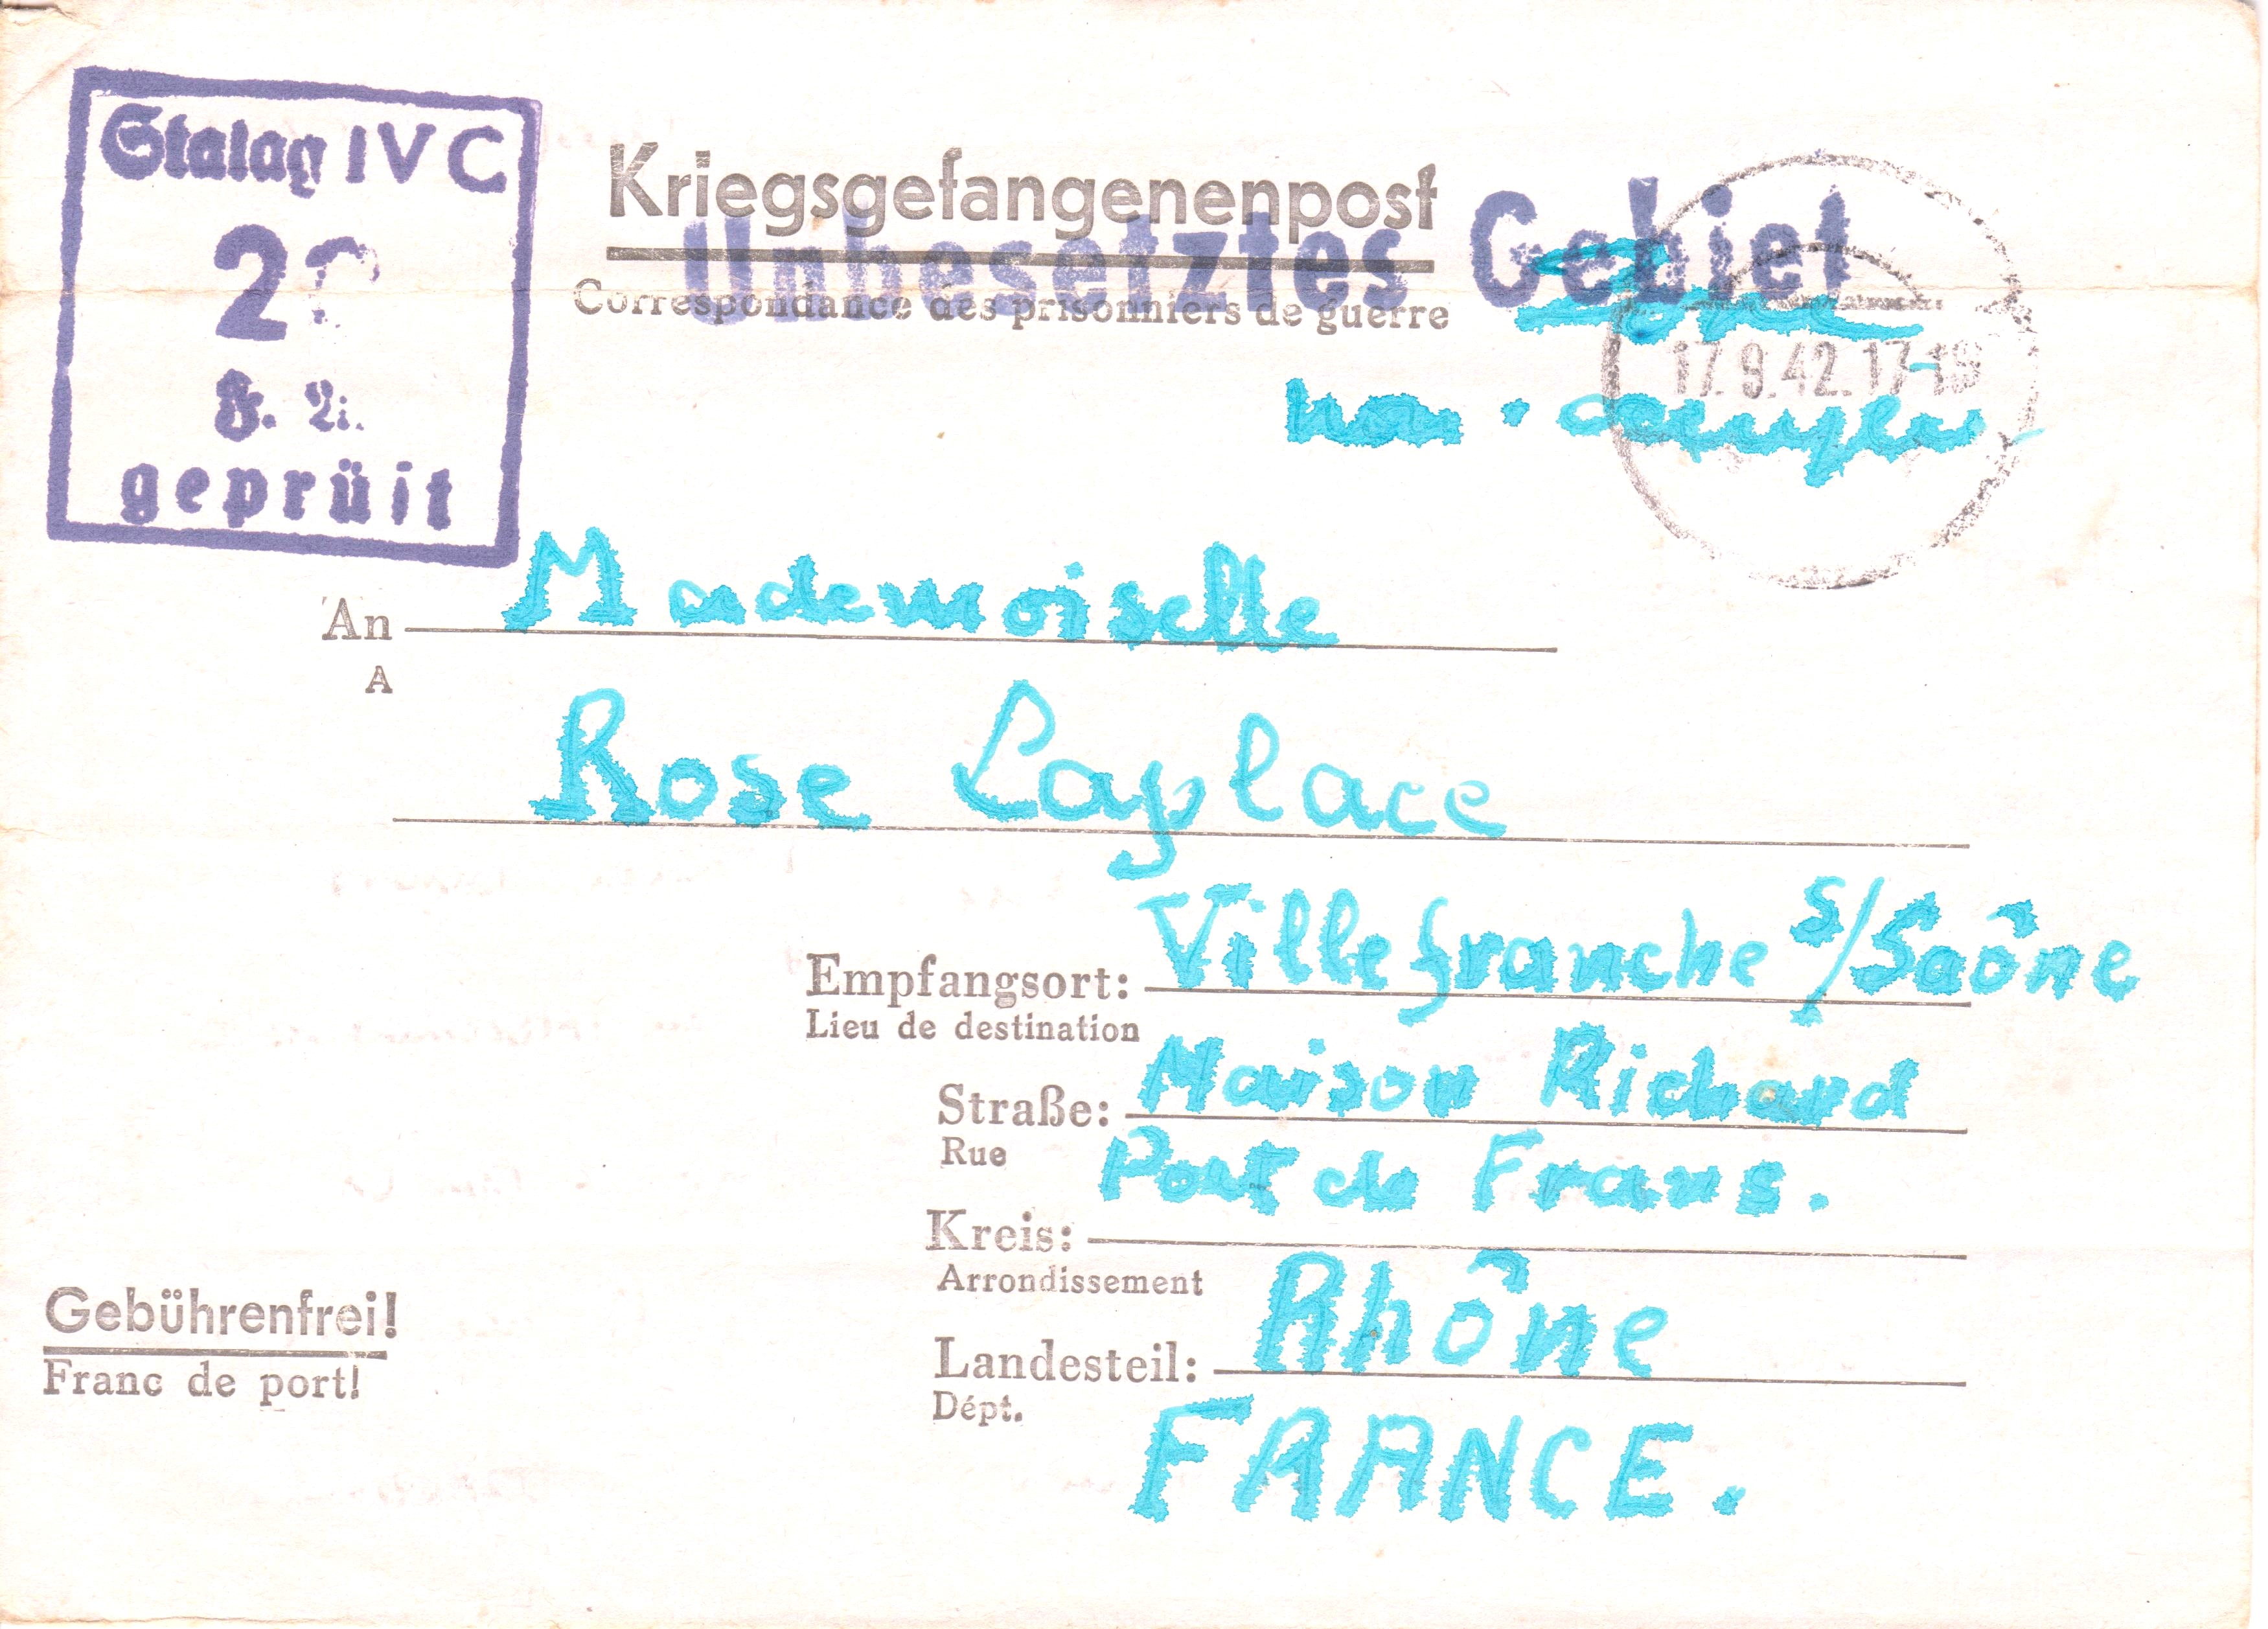 Stalag IV C
2
geprüft
Kriegsgefangenenpost
Unbesetztes Gebiet
Correspondance des prisonniers de guerre
Zone
17.9.42.17-19
non-occupée
An Mademoiselle
A
Rose Laplace
Empfangsort: Villefranche s/Saône
Lieu de destination
Straße: Maison Richard
Rue
Port de Frans.
Kreis:
Arrondissement
Gebührenfrei!
Franc de port!
Landesteil: Rhône
Dépt.
FRANCE.